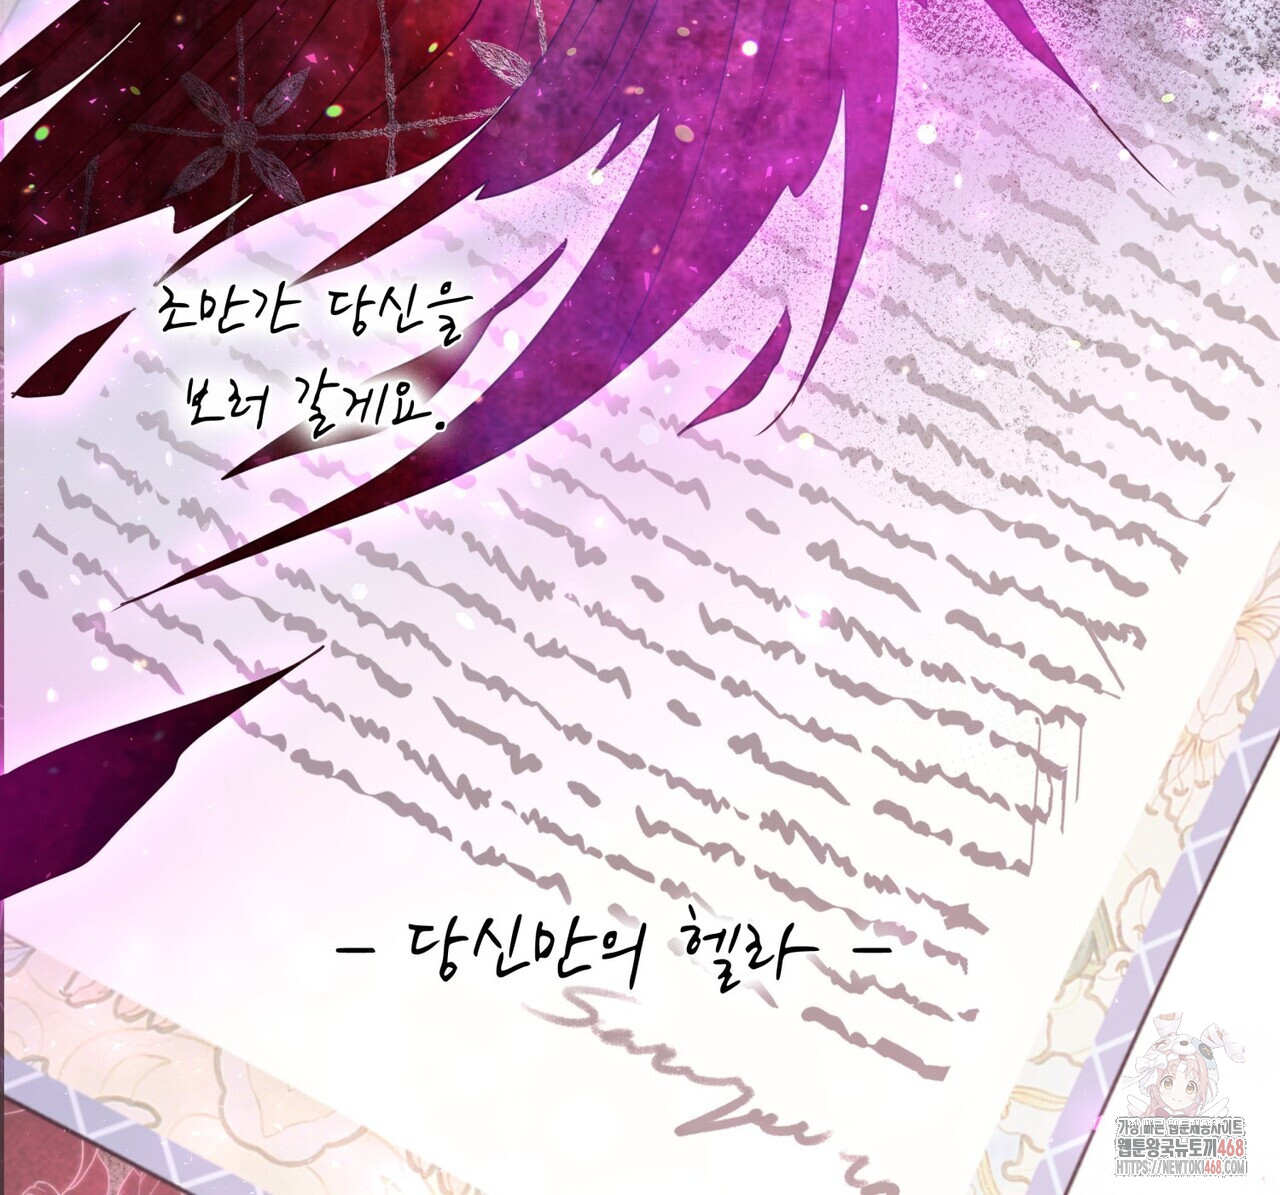 조만간 당신을
보러 갈게요.
- 당신만의 헬라 -
가장 빠른 웹툰제공사이트
웹툰왕국뉴토끼468
HTTPS://NEWTOKI468.COM